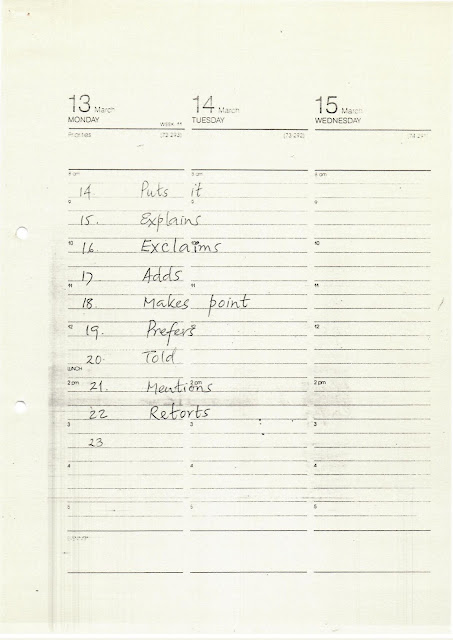 13 March 14 March 15 March
MONDAY WEEK 11 TUESDAY WEDNESDAY
Priorities (72-293) (73-292)
8 am 8 am 8 am
14 Puts it
9 9 9
15. Explains
10 10 10
16. Exclaims
17 Adds
11 11 11
18. Makes point
12 12
19. Prefers
20. Told
LUNCH
2 pm 21. Mentions 2 pm 2 pm
22 Retorts
3 3 3
23
4 4 4
5 5 5